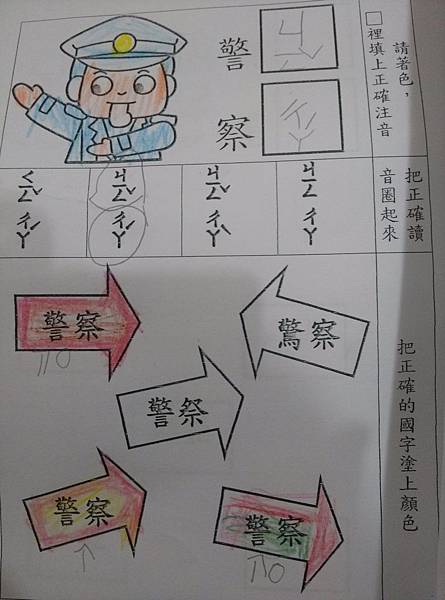 請著色，
□裡填上正確注音
警察
ㄔㄚˊ
把正確讀
音圈起來
ㄐㄧㄥ ㄔㄚ
ㄐㄧㄥˇ ㄔㄚˋ
ㄐㄧㄥˇ ㄔㄚˊ
ㄑㄧㄥˇ ㄔㄚˊ
把正確的國字塗上顏色
警察
驚察
警祭
警察
警察